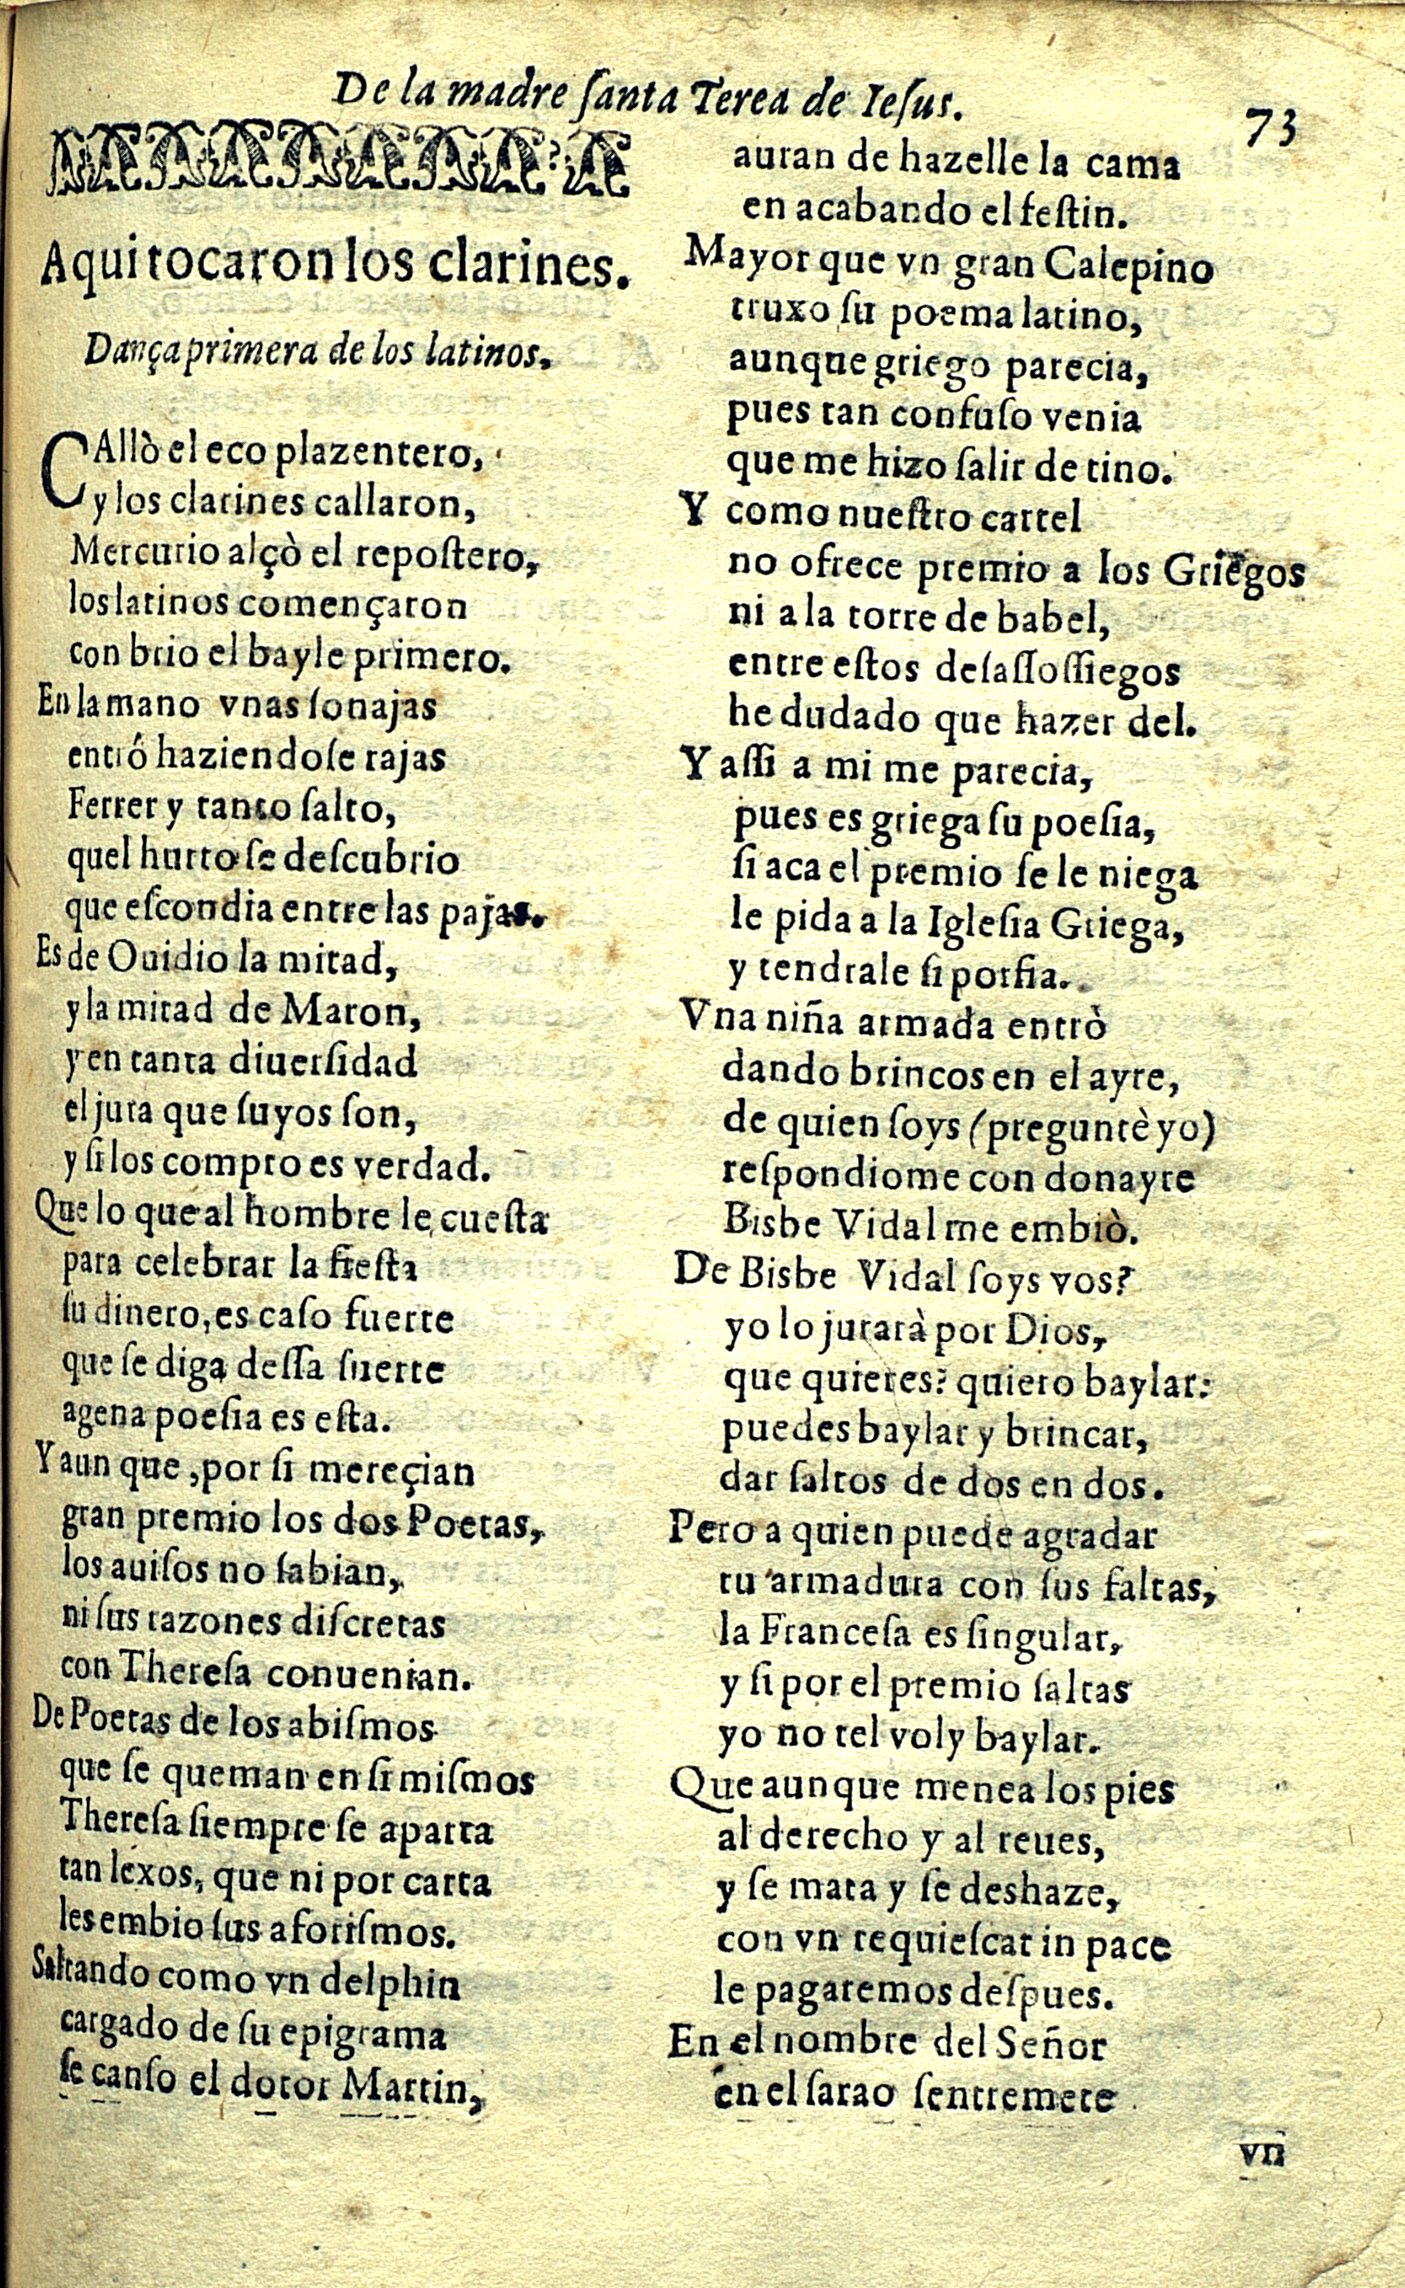 De la madre ſanta Terea de Ieſus.
73
Aqui tocaron los clarines.
Dança primera de los latinos.
CAllò el eco plazentero,
y los clarines callaron,
Mercurio alçò el repoſtero,
los latinos començaron
con brio el bayle primero.
En la mano vnas ſonajas
entró haziendoſe rajas
Ferrer y tanto ſalto,
quel hurto ſe deſcubrio
que eſcondia entre las pajas.
Es de Ouidio la mitad,
y la mitad de Maron,
y en tanta diuerſidad
el jura que ſuyos ſon,
y ſi los compro es verdad.
Que lo que al hombre le cueſta
para celebrar la fieſta
ſu dinero, es caſo fuerte
que ſe diga deſſa ſuerte
agena poeſia es eſta.
Y aun que , por ſi mereçian
gran premio los dos Poetas,
los auiſos no ſabian,
ni ſus razones diſcretas
con Thereſa conuenian.
De Poetas de los abiſmos
que ſe queman en ſi miſmos
Thereſa ſiempre ſe aparta
tan lexos, que ni por carta
les embio ſus aforiſmos.
Saltando como vn delphin
cargado de ſu epigrama
ſe canſo el dotor Martin,
auran de hazelle la cama
en acabando el feſtin.
Mayor que vn gran Calepino
truxo ſu poema latino,
aunque griego parecia,
pues tan confuſo venia
que me hizo ſalir de tino.
Y como nueſtro cartel
no ofrece premio a los Griegos
ni a la torre de babel,
entre eſtos deſaſſoſſiegos
he dudado que hazer del.
Y aſſi a mi me parecia,
pues es griega ſu poeſia,
ſi aca el premio ſe le niega
le pida a la Igleſia Griega,
y tendrale ſi porfia.
Vna niña armada entrò
dando brincos en el ayre,
de quien ſoys (preguntè yo)
reſpondiome con donayre
Bisbe Vidal me embiò.
De Bisbe Vidal ſoys vos?
yo lo jurarà por Dios,
que quieres? quiero baylar:
puedes baylar y brincar,
dar ſaltos de dos en dos.
Pero a quien puede agradar
tu armadura con ſus faltas,
la Franceſa es ſingular,
y ſi por el premio ſaltas
yo no tel voly baylar.
Que aunque menea los pies
al derecho y al reues,
y ſe mata y ſe deshaze,
con vn requieſcat in pace
le pagaremos deſpues.
En el nombre del Señor
en el ſarao ſentremete
vn